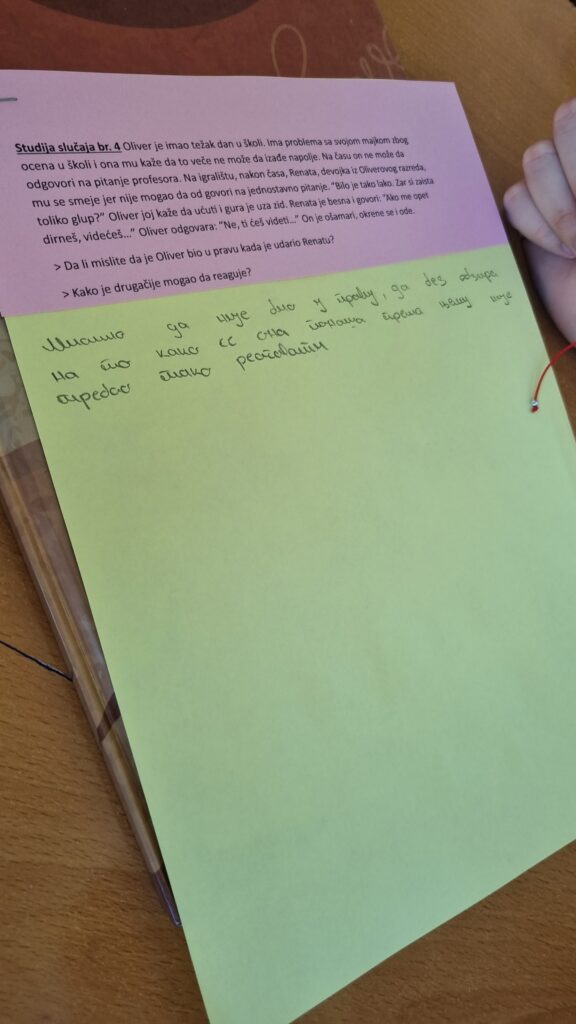 Studija slučaja br. 4 Oliver je imao težak dan u školi. Ima problema sa svojom majkom zbog
ocena u školi i ona mu kaže da to veče ne može da izađe napolje. Na času on ne može da
odgovori na pitanje profesora. Na igralištu, nakon časa, Renata, devojka iz Oliverovog razreda,
mu se smeje jer nije mogao da od govori na jednostavno pitanje. "Bilo je tako lako. Zar si zaista
toliko glup?" Oliver joj kaže da ućuti i gura je uza zid. Renata je besna i govori: "Ako me opet
dirneš, videćeš..." Oliver odgovara: "Ne, ti ćeš videti..." On je ošamari, okrene se i ode.
> Da li mislite da je Oliver bio u pravu kada je udario Renatu?
> Kako je drugačije mogao da reaguje?
Мислимо да није био у праву, да без обзира
на то како се она понаша према њему није
требао тако реаговати